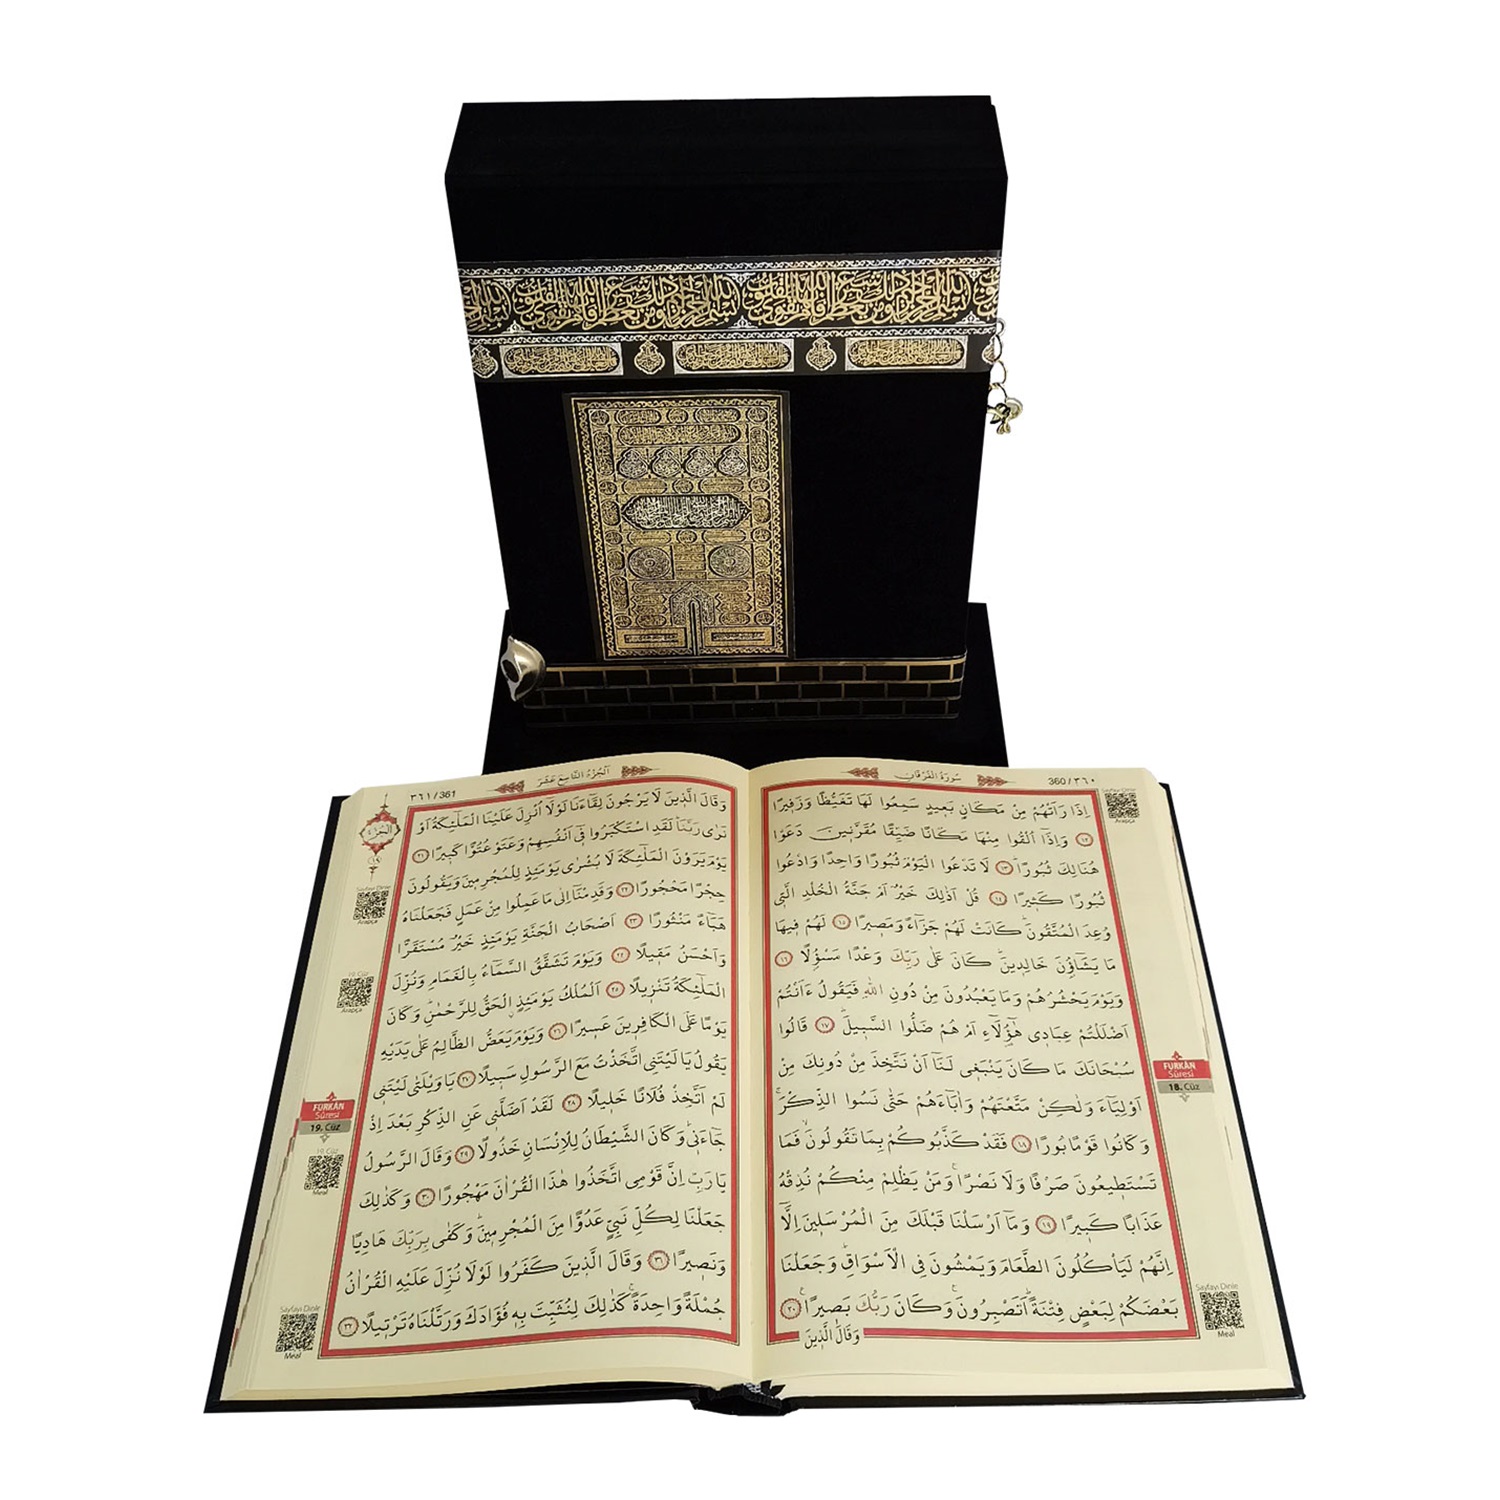 سورة الفرقان
360/٣٦٠
اِذَا رَاَتْهُمْ مِنْ مَكَانٍ بَع۪يدٍ سَمِعُوا لَهَا تَغَيُّظًا وَزَف۪يرًا
﴿١٢﴾ وَاِذَٓا اُلْقُوا مِنْهَا مَكَانًا ضَيِّقًا مُقَرَّن۪ينَ دَعَوْا
هُنَالِكَ ثُبُورًاۜ ﴿١٣﴾ لَا تَدْعُوا الْيَوْمَ ثُبُورًا وَاحِدًا وَادْعُوا
ثُبُورًا كَث۪يرًا ﴿١٤﴾ قُلْ اَذٰلِكَ خَيْرٌ اَمْ جَنَّةُ الْخُلْدِ الَّت۪ي
وُعِدَ الْمُتَّقُونَۜ كَانَتْ لَهُمْ جَزَٓاءً وَمَص۪يرًا ﴿١٥﴾ لَهُمْ ف۪يهَا
مَا يَشَٓاؤُ۫نَ خَالِد۪ينَۜ كَانَ عَلٰى رَبِّكَ وَعْدًا مَسْؤُ۫لًا ﴿١٦﴾
وَيَوْمَ يَحْشُرُهُمْ وَمَا يَعْبُدُونَ مِنْ دُونِ اللّٰهِ فَيَقُولُ ءَاَنْتُمْ
اَضْلَلْتُمْ عِبَاد۪ي هٰٓؤُ۬لَٓاءِ اَمْ هُمْ ضَلُّوا السَّب۪يلَۜ ﴿١٧﴾ قَالُوا
سُبْحَانَكَ مَا كَانَ يَنْبَغ۪ي لَنَٓا اَنْ نَتَّخِذَ مِنْ دُونِكَ مِنْ
اَوْلِيَٓاءَ وَلٰكِنْ مَتَّعْتَهُمْ وَاٰبَٓاءَهُمْ حَتّٰى نَسُوا الذِّكْرَۚ
وَكَانُوا قَوْمًا بُورًا ﴿١٨﴾ فَقَدْ كَذَّبُوكُمْ بِمَا تَقُولُونَۙ فَمَا
تَسْتَط۪يعُونَ صَرْفًا وَلَا نَصْرًاۚ وَمَنْ يَظْلِمْ مِنْكُمْ نُذِقْهُ
عَذَابًا كَب۪يرًا ﴿١٩﴾ وَمَٓا اَرْسَلْنَا قَبْلَكَ مِنَ الْمُرْسَل۪ينَ اِلَّٓا
اِنَّهُمْ لَيَأْكُلُونَ الطَّعَامَ وَيَمْشُونَ فِي الْاَسْوَاقِۜ وَجَعَلْنَا
بَعْضَكُمْ لِبَعْضٍ فِتْنَةًۜ اَتَصْبِرُونَۚ وَكَانَ رَبُّكَ بَص۪يرًاۚ ﴿٢٠﴾
وَقَالَ الَّذ۪ينَ
Arapça
FURKÂN
Sûresi
18. Cüz
Sayfayı Dinle
Meal
الجزء التاسع عشر
٣٦١/361
وَقَالَ الَّذ۪ينَ لَا يَرْجُونَ لِقَٓاءَنَا لَوْلَٓا اُنْزِلَ عَلَيْنَا الْمَلٰٓئِكَةُ اَوْ
نَرٰى رَبَّنَاۜ لَقَدِ اسْتَكْبَرُوا ف۪ٓي اَنْفُسِهِمْ وَعَتَوْ عُتُوًّا كَب۪يرًا ﴿٢١﴾
يَوْمَ يَرَوْنَ الْمَلٰٓئِكَةَ لَا بُشْرٰى يَوْمَئِذٍ لِلْمُجْرِم۪ينَ وَيَقُولُونَ
حِجْرًا مَحْجُورًا ﴿٢٢﴾ وَقَدِمْنَٓا اِلٰى مَا عَمِلُوا مِنْ عَمَلٍ فَجَعَلْنَاهُ
هَبَٓاءً مَنْثُورًا ﴿٢٣﴾ اَصْحَابُ الْجَنَّةِ يَوْمَئِذٍ خَيْرٌ مُسْتَقَرًّا
وَاَحْسَنُ مَق۪يلًا ﴿٢٤﴾ وَيَوْمَ تَشَقَّقُ السَّمَٓاءُ بِالْغَمَامِ وَنُزِّلَ
الْمَلٰٓئِكَةُ تَنْز۪يلًا ﴿٢٥﴾ اَلْمُلْكُ يَوْمَئِذٍۨ الْحَقُّ لِلرَّحْمٰنِۜ وَكَانَ
يَوْمًا عَلَى الْكَافِر۪ينَ عَس۪يرًا ﴿٢٦﴾ وَيَوْمَ يَعَضُّ الظَّالِمُ عَلٰى يَدَيْهِ
يَقُولُ يَا لَيْتَنِي اتَّخَذْتُ مَعَ الرَّسُولِ سَب۪يلًا ﴿٢٧﴾ يَا وَيْلَتٰى لَيْتَن۪ي
لَمْ اَتَّخِذْ فُلَانًا خَل۪يلًا ﴿٢٨﴾ لَقَدْ اَضَلَّن۪ي عَنِ الذِّكْرِ بَعْدَ اِذْ
جَٓاءَن۪يۜ وَكَانَ الشَّيْطَانُ لِلْاِنْسَانِ خَذُولًا ﴿٢٩﴾ وَقَالَ الرَّسُولُ
يَا رَبِّ اِنَّ قَوْمِي اتَّخَذُوا هٰذَا الْقُرْاٰنَ مَهْجُورًا ﴿٣٠﴾ وَكَذٰلِكَ
جَعَلْنَا لِكُلِّ نَبِيٍّ عَدُوًّا مِنَ الْمُجْرِم۪ينَۜ وَكَفٰى بِرَبِّكَ هَادِيًا
وَنَص۪يرًا ﴿٣١﴾ وَقَالَ الَّذ۪ينَ كَفَرُوا لَوْلَا نُزِّلَ عَلَيْهِ الْقُرْاٰنُ
جُمْلَةً وَاحِدَةًۚ كَذٰلِكَ لِنُثَبِّتَ بِه۪ فُؤٰادَكَ وَرَتَّلْنَاهُ تَرْت۪يلًا ﴿٣٢﴾
الجزء
١٩
Sayfayı Dinle
Arapça
19. Cüz
Arapça
FURKÂN
Sûresi
19. Cüz
19. Cüz
Meal
Sayfayı Dinle
Meal